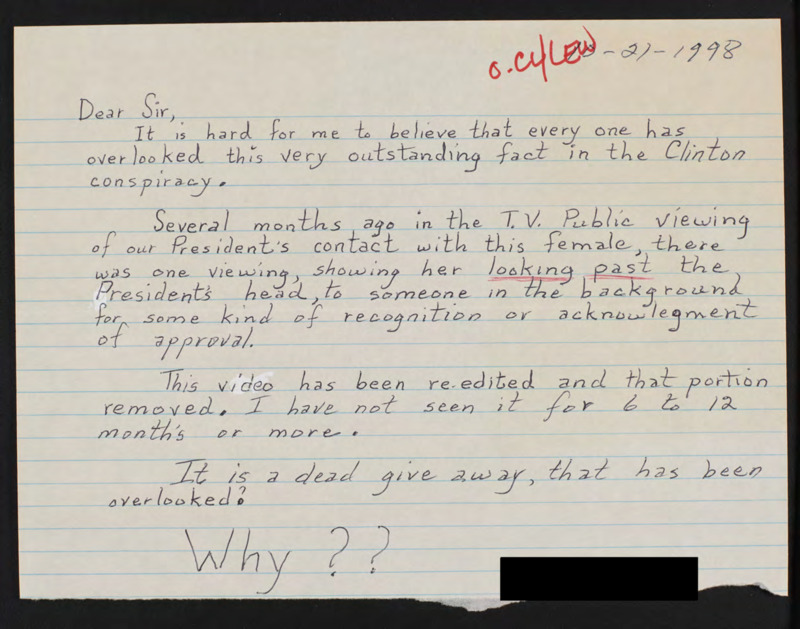 O.C4/LEW -21-1998
Dear Sir,
It is hard for me to believe that every one has
overlooked this very outstanding fact in the Clinton
conspiracy.
Several months ago in the T.V. Public viewing
of our President's contact with this female, there
was one viewing, showing her looking past the
President's head, to someone in the background
for some kind of recognition or acknowlegment
of approval.
This video has been re-edited and that portion
removed. I have not seen it for 6 to 12
month's or more.
It is a dead give away, that has been
overlooked?
Why ??